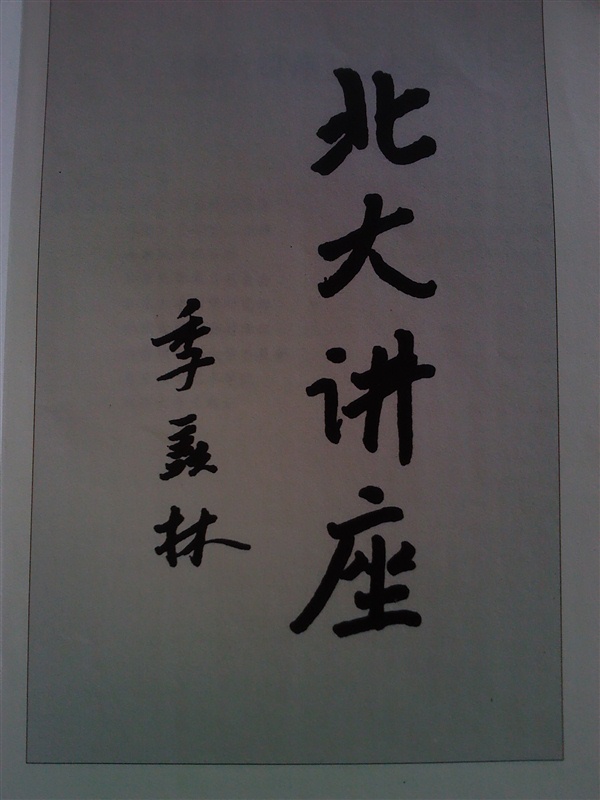 北大讲座
季羡林